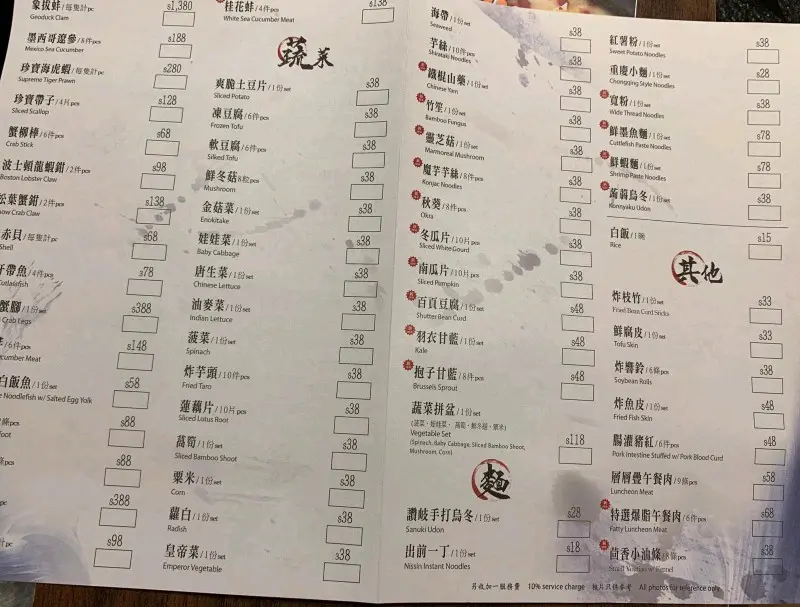 象拔蚌/每隻計pc
$1,380
Geoduck Clam
墨西哥遼參/8件pcs
$188
Mexico Sea Cucumber
珍寶海虎蝦/每隻計pc
$280
Supreme Tiger Prawn
珍寶帶子/4片pcs
$128
Sliced Scallop
蟹柳棒/6件pcs
$68
Crab Stick
波士頓龍蝦鉗/2件pcs
$98
Boston Lobster Claw
松葉蟹鉗/2件pcs
$138
Snow Crab Claw
赤貝/每隻計pc
$68
Shell
帶魚/4件pcs
$78
Cutlassfish
蟹腳/1份set
$388
Crab Legs
/6件pcs
$148
Cucumber Meat
白飯魚/1份set
$58
Noodlefish w/ Salted Egg Yolk
$88
$88
$388
$98
桂花蚌/4件pcs
$138
White Sea Cucumber Meat
蔬菜
爽脆土豆片/1份set
$38
Sliced Potato
凍豆腐/6件pcs
$38
Frozen Tofu
軟豆腐/6件pcs
$38
Silked Tofu
鮮冬菇8粒pcs
$38
Mushroom
金菇菜/1份set
$38
Enokitake
娃娃菜/1份set
$38
Baby Cabbage
唐生菜/1份set
$38
Chinese Lettuce
油麥菜/1份set
$38
Indian Lettuce
菠菜/1份set
$38
Spinach
炸芋頭/10件pcs
$38
Fried Taro
蓮藕片/10片pcs
$38
Sliced Lotus Root
萵筍/1份set
$38
Sliced Bamboo Shoot
粟米/1份set
$38
Corn
蘿白/1份set
$38
Radish
皇帝菜/1份set
$38
Emperor Vegetable
海帶/1份set
$38
Seaweed
芋絲/10件pcs
$38
Shirataki Noodles
鐵棍山藥/1份set
$38
Chinese Yam
竹笙/1份set
$38
Bamboo Fungus
靈芝菇/1份set
$38
Marmoreal Mushroom
魔芋芋絲/8件pcs
$38
Konjac Noodles
秋葵/8件pcs
$38
Okra
冬瓜片/10片pcs
$38
Sliced White Gourd
南瓜片/10片pcs
$38
Sliced Pumpkin
百頁豆腐/1份set
$48
Shutter Bean Curd
羽衣甘藍/1份set
$48
Kale
抱子甘藍/8件pcs
$48
Brussels Sprout
蔬菜拼盆/1份set
Vegetable Set
$118
(Spinach, Baby Cabbage, Sliced Bamboo Shoot,
Mushroom, Corn)
麵
讚岐手打烏冬/1份set
$28
Sanuki Udon
出前一丁/1份set
$18
Nissin Instant Noodles
紅薯粉/1份set
$38
Sweet Potato Noodles
重慶小麵/1份set
$28
Chongqing Style Noodles
寬粉/1份set
$38
Wide Thread Noodles
鮮墨魚麵/1份set
$78
Cuttlefish Paste Noodles
鮮蝦麵/1份set
$78
Shrimp Paste Noodles
蒟蒻烏冬/1份set
$38
Konnyaku Udon
白飯/1碗
$15
Rice
其他
炸枝竹/1份set
$33
Fried Bean Curd Sticks
鮮腐皮/1份set
$33
Tofu Skin
炸響鈴/6條pcs
$38
Soybean Rolls
炸魚皮/1份set
$48
Fried Fish Skin
腸灌豬紅/6件pcs
$48
Pork Intestine Stuffed w/ Pork Blood Curd
層層疊午餐肉/9條pcs
$58
Luncheon Meat
特選爆脂午餐肉/6件pcs
$68
Fatty Luncheon Meat
茴香小油條/8條pcs
$38
Small Youtiao w/ Fennel
另收加一服務費 10% service charge 相片只供參考 All photos for reference only